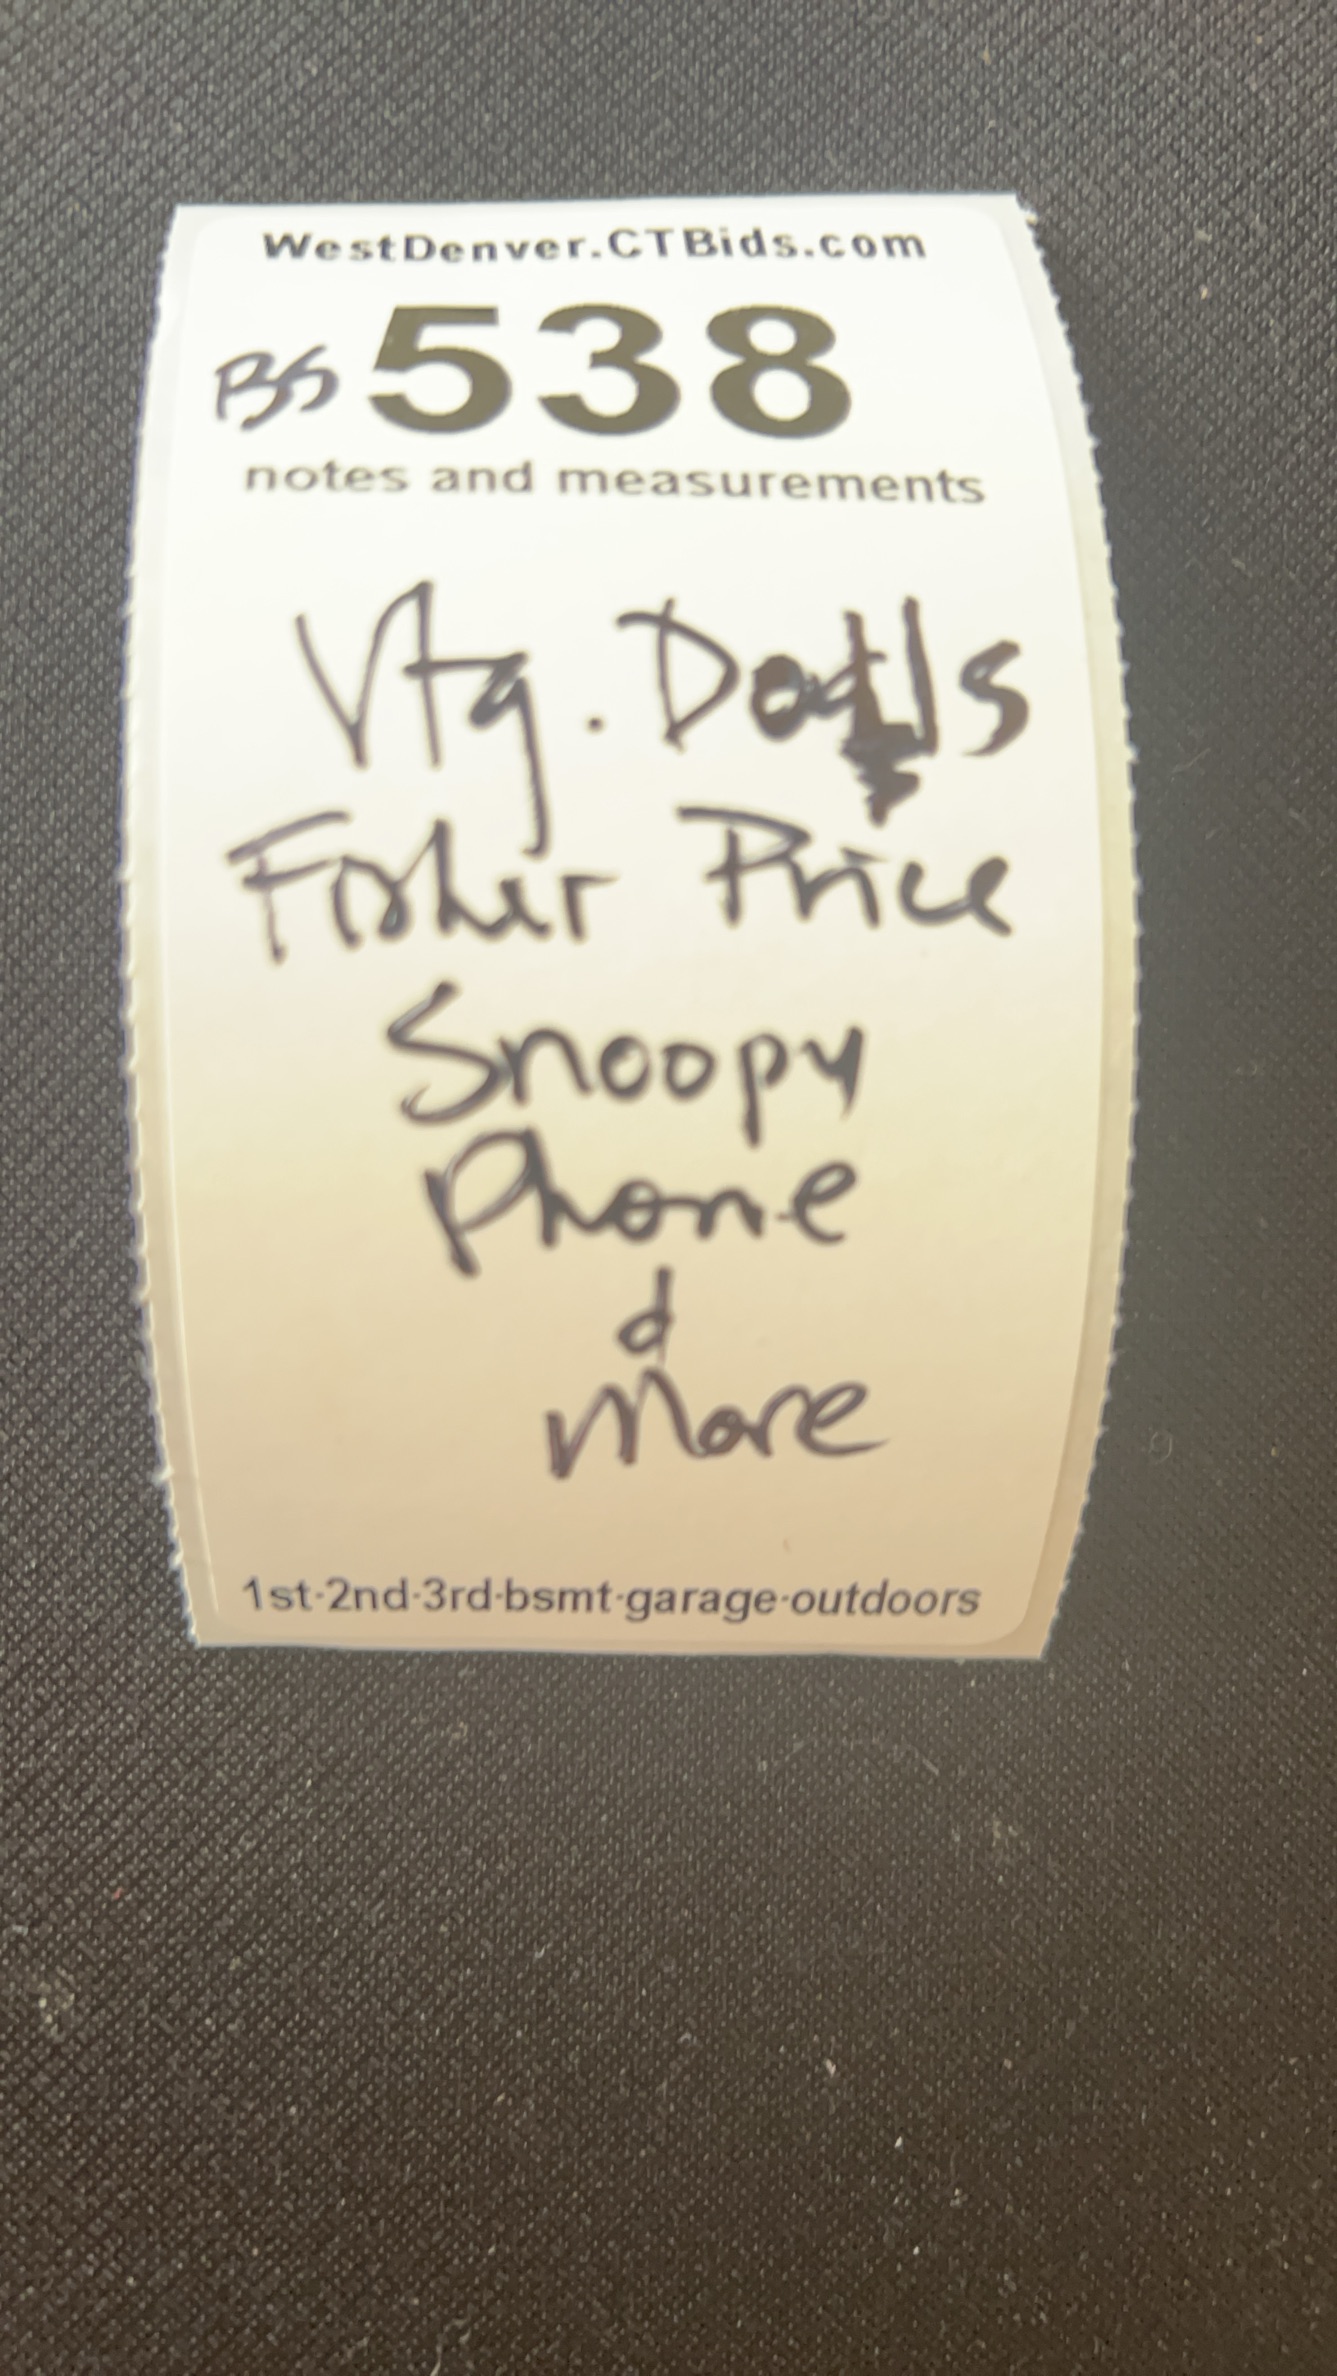 WestDenver.CTBids.com
BS 538
notes and measurements
Vtg. Dolls
Fisher Price
Snoopy
Phone
&
More
1st-2nd-3rd-bsmt-garage-outdoors